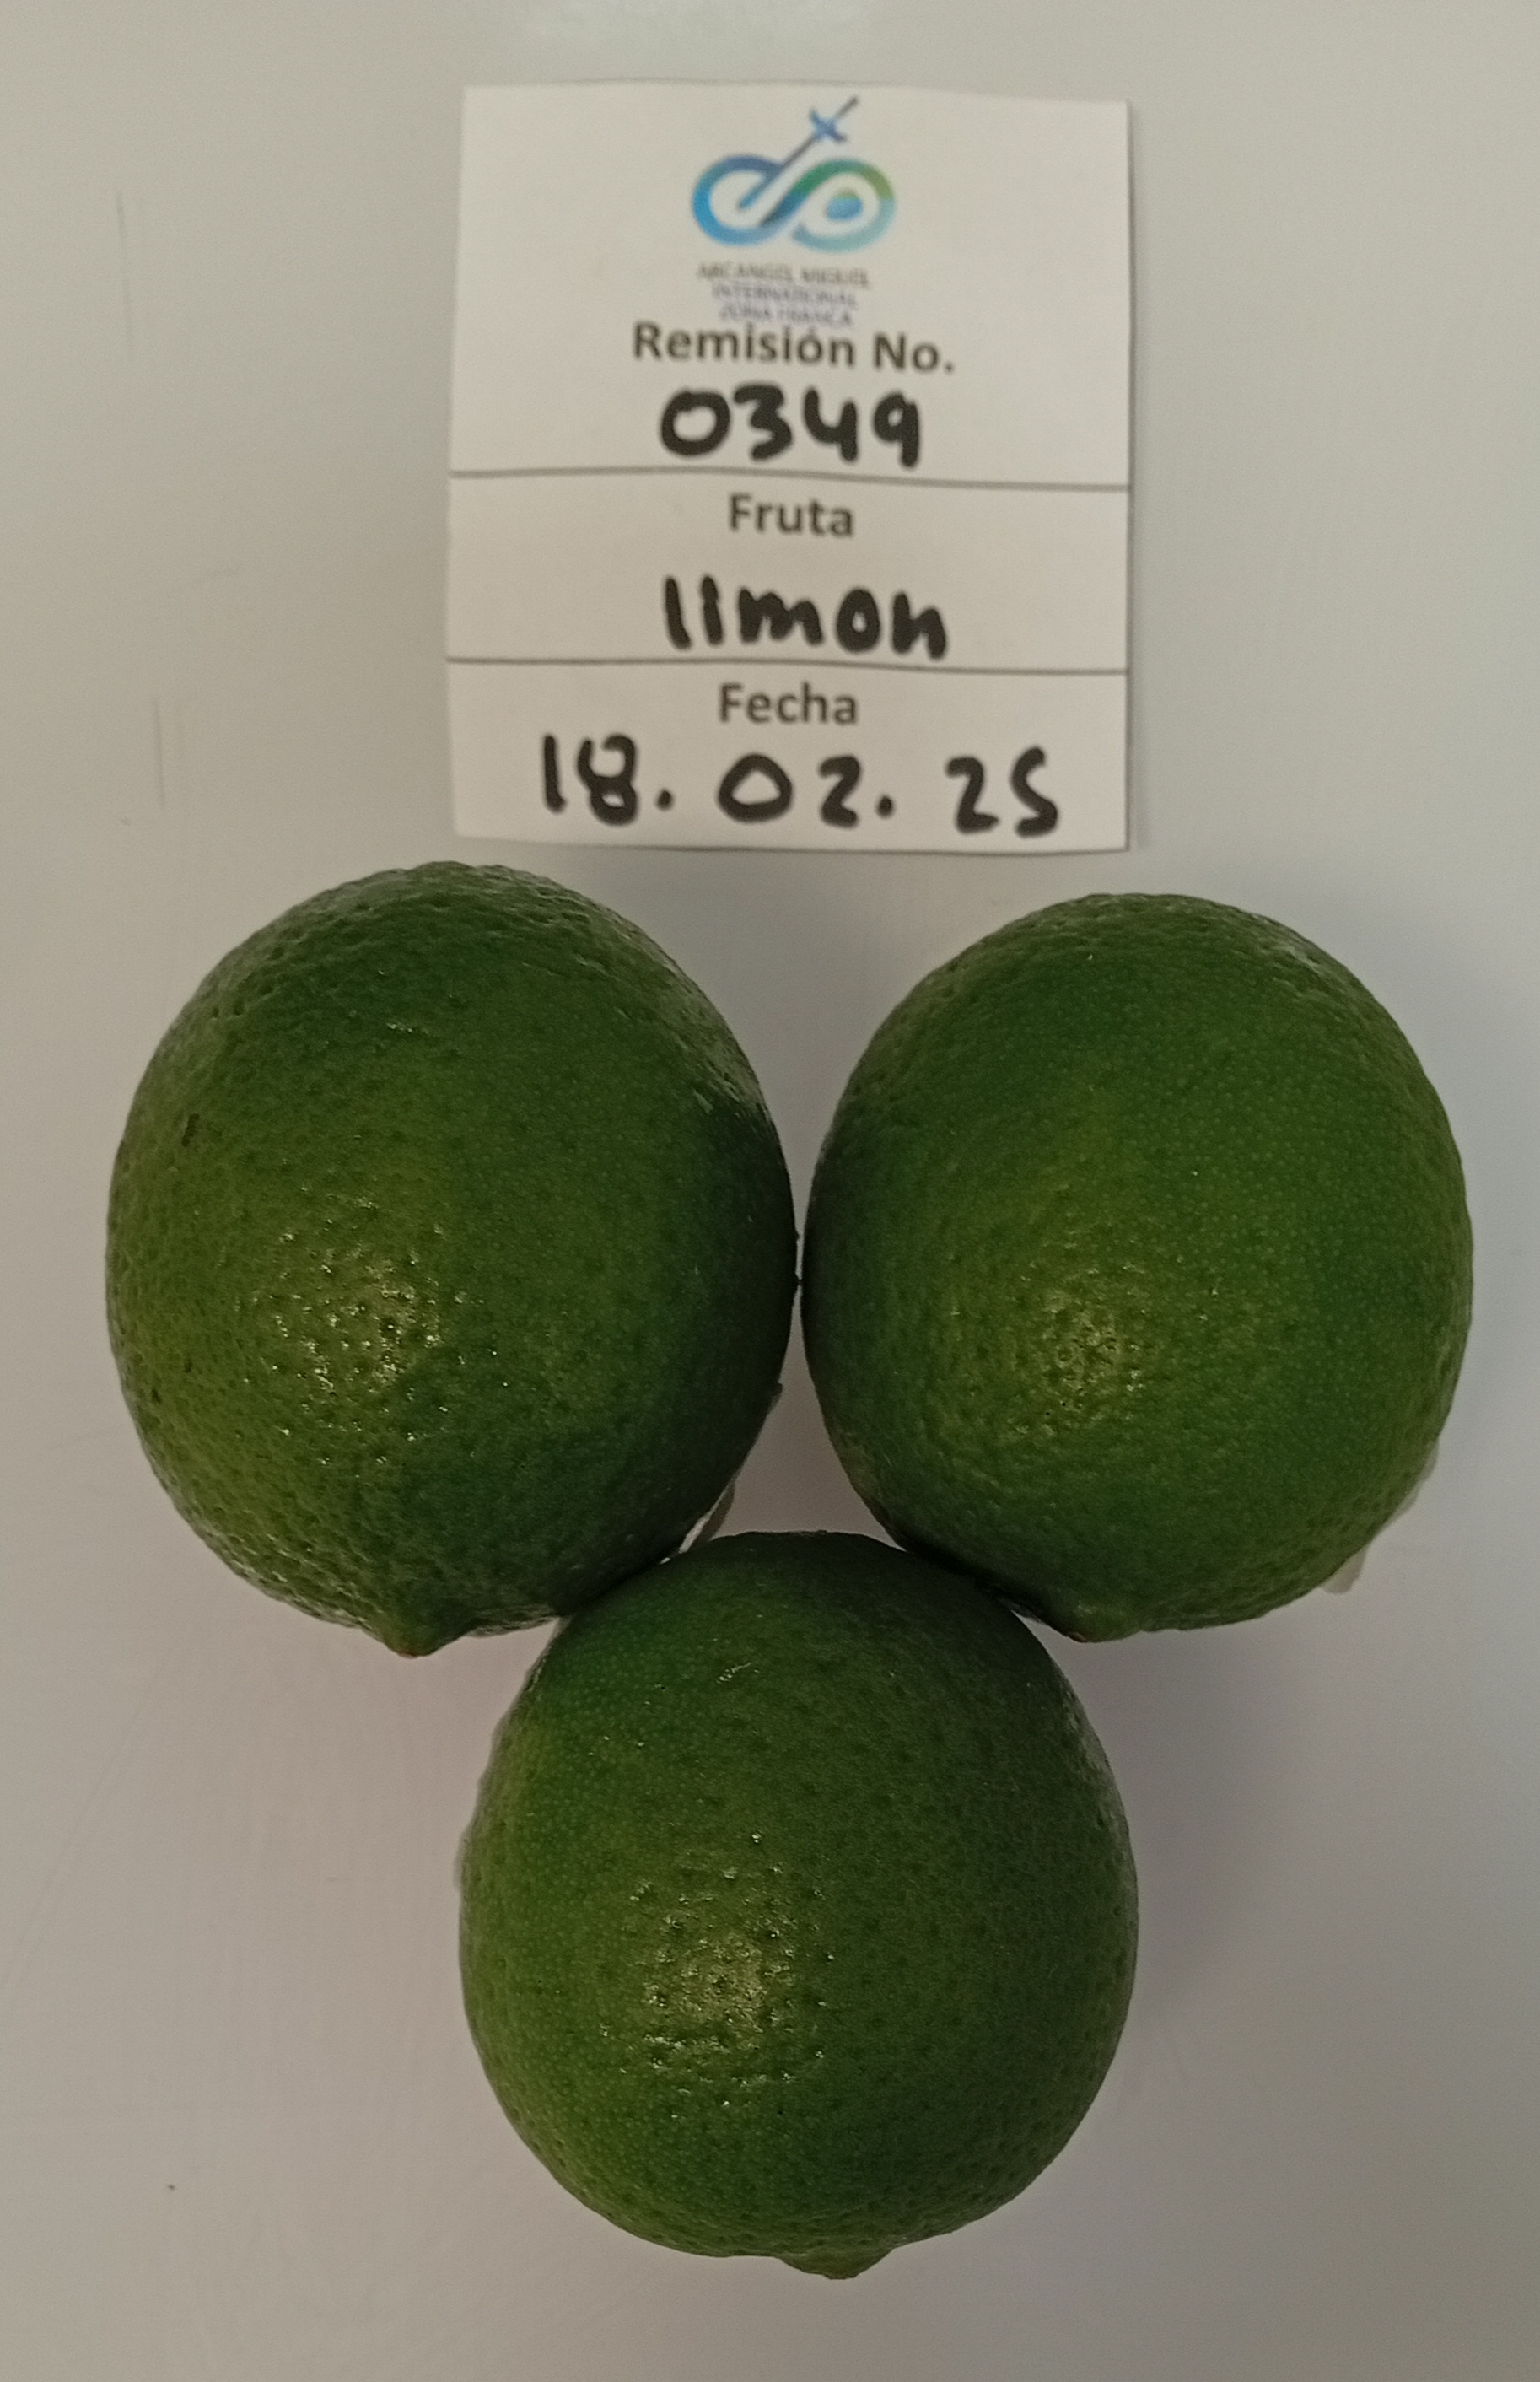 ARCANGEL MIGUEL
INTERNATIONAL
ZONA FRANCA
Remisión No.
0349
Fruta
limon
Fecha
18.02.25